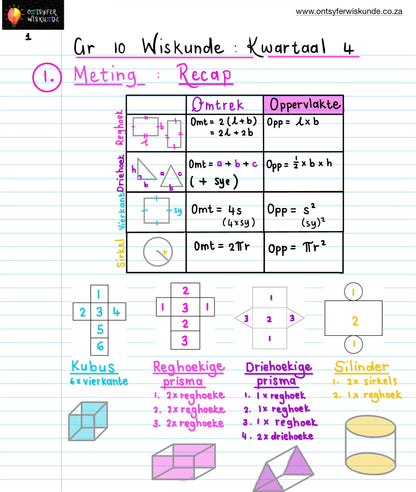 ONTSYFER
WISKUNDE
www.ontsyferwiskunde.co.za
1
Gr 10 Wiskunde : Kwartaal 4
1. Meting : Recap
Omtrek Oppervlakte
Reghoek
l b l b
Omt = 2(l+b)
= 2l + 2b
Opp = l x b
Driehoek
h b a c b
Omt = a + b + c
(+ sye)
Opp = ½ x b x h
Vierkant
sy
Omt = 4s
(4xsy)
Opp = s²
(sy)²
Sirkel
r
Omt = 2πr
Opp = πr²
1
2 3 4
5
6
2
1 3 1
2
3
1
3 2 3
1
1
2
1
Kubus
6 x vierkante
Reghoekige
prisma
1. 2x reghoeke
2. 2x reghoeke
3. 2x reghoeke
Driehoekige
prisma
1. 1x reghoek
2. 1x reghoek
3. 1x reghoek
4. 2x driehoeke
Silinder
1. 2x sirkels
2. 1x reghoek